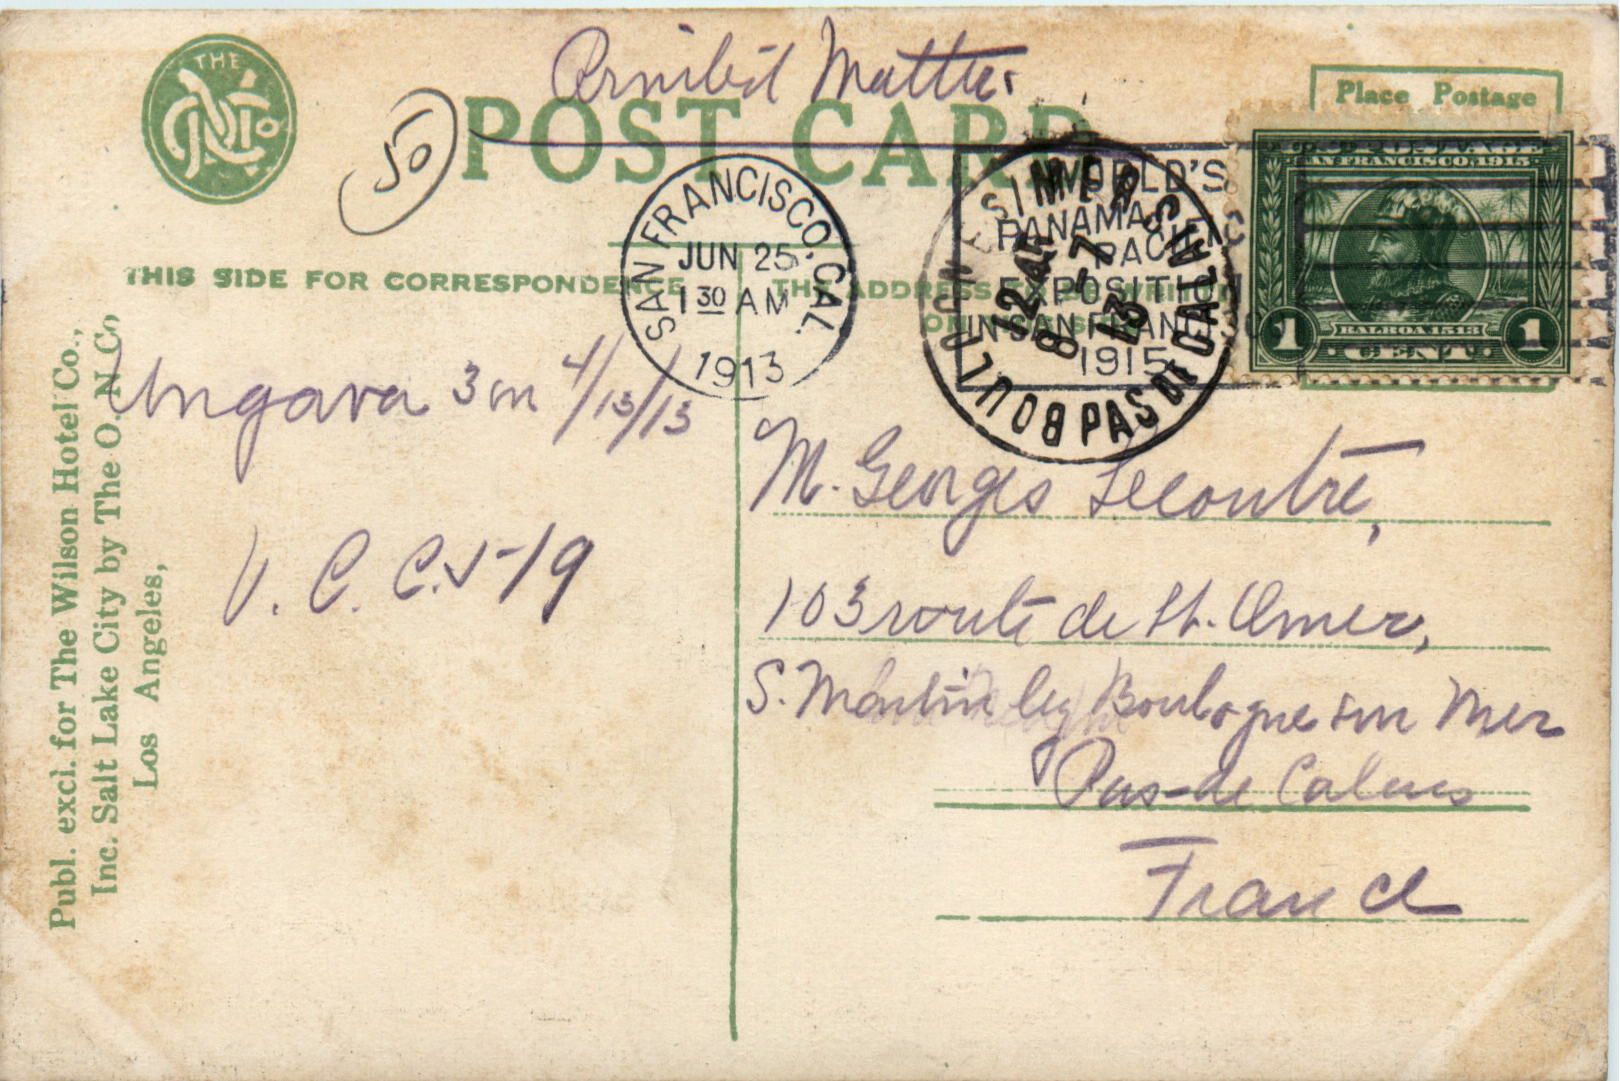 Printed Matter.
THE
O N Co
50
POST CARD
Place Postage
SAN FRANCISCO, CAL.
JUN 25
1 30 AM
1913
WORLD'S
PANAMA
PACIFIC
EXPOSITION
IN SAN FRANCISCO
1915
BOULOGNE S. MER PAS DE CALAIS
12 45
8 - 7
13
SAN FRANCISCO, 1915
BALBOA 1513
1 CENT 1
THIS SIDE FOR CORRESPONDENCE
THE ADDRESS
Ungava 3 m 4/13/13
V. C. C. 5-19
M. Georges Lecontre,
103 route de St. Omer,
S. Martin les Boulogne sur Mer
Pas-de Calais
France
Publ. excl. for The Wilson Hotel Co.,
Inc. Salt Lake City by The O. N. Co
Los Angeles,